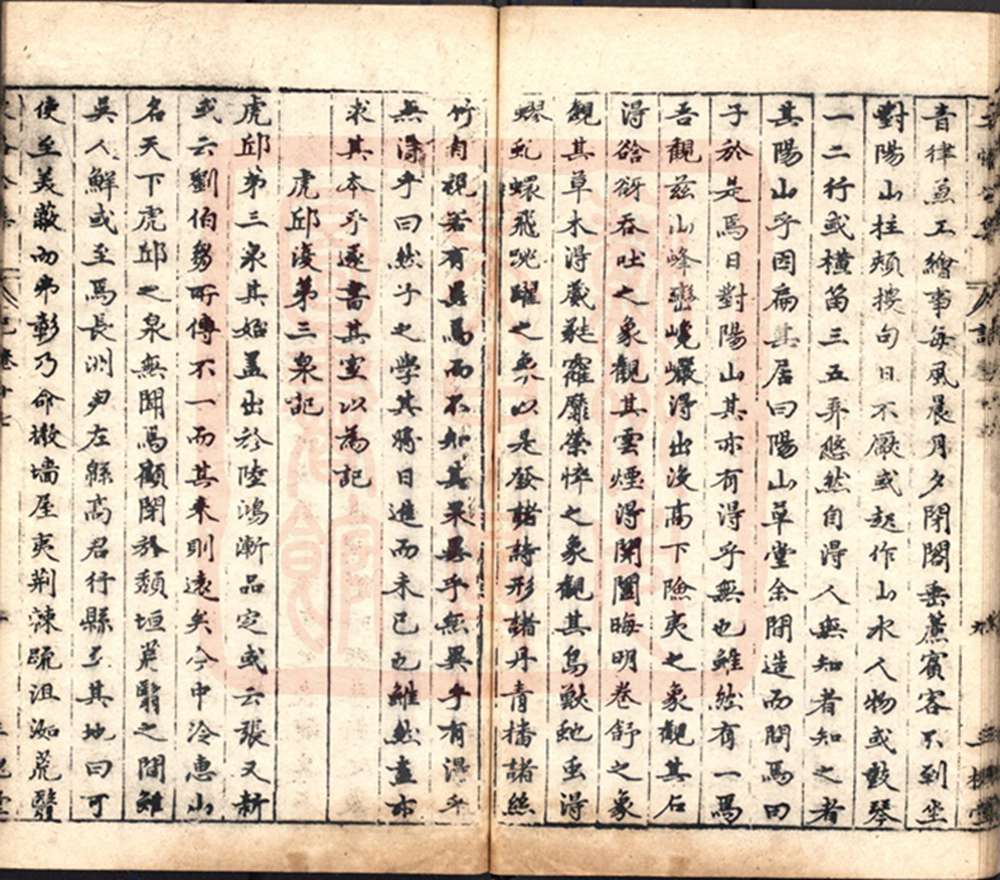 音律兼工繪事每風晨月夕閉閤垂簾賓客不到坐
對陽山拄頰搜句日不厭或起作山水人物或鼓琴
一二行或橫笛三五弄悠然自得人無知者知之者
其陽山乎因扁其居曰陽山草堂余間造而問焉曰
子於是焉日對陽山其亦有得乎無也雖然有一焉
吾觀茲山峰巒巉巖得出沒高下險夷之象觀其石
得谽谺吞吐之象觀其雲煙得開闔晦明卷舒之象
觀其草木得葳蕤靡榮悴之象觀其鳥獸虵虫得
蟉虬蠉飛跳躍之象以是發諸詩形諸丹青播諸絲
竹自視若有異焉而不知其果異乎無異乎有得乎
無得乎曰然子之學其將日進而未已也雖然盍亦
求其本乎遂書其室以為記
虎邱復第三泉記
虎邱第三泉其始盖出於陸鴻漸品定或云張又新
或云劉伯芻所傳不一而其來則遠矣今中冷惠山
名天下虎邱之泉無聞焉顧閉於頹垣荒翳之間雖
吳人鮮或至焉長洲尹左緜高君行縣至其地曰可
使至美蔽而弗彰乃命撤墻屋夷荆棘疏沮洳荒翳